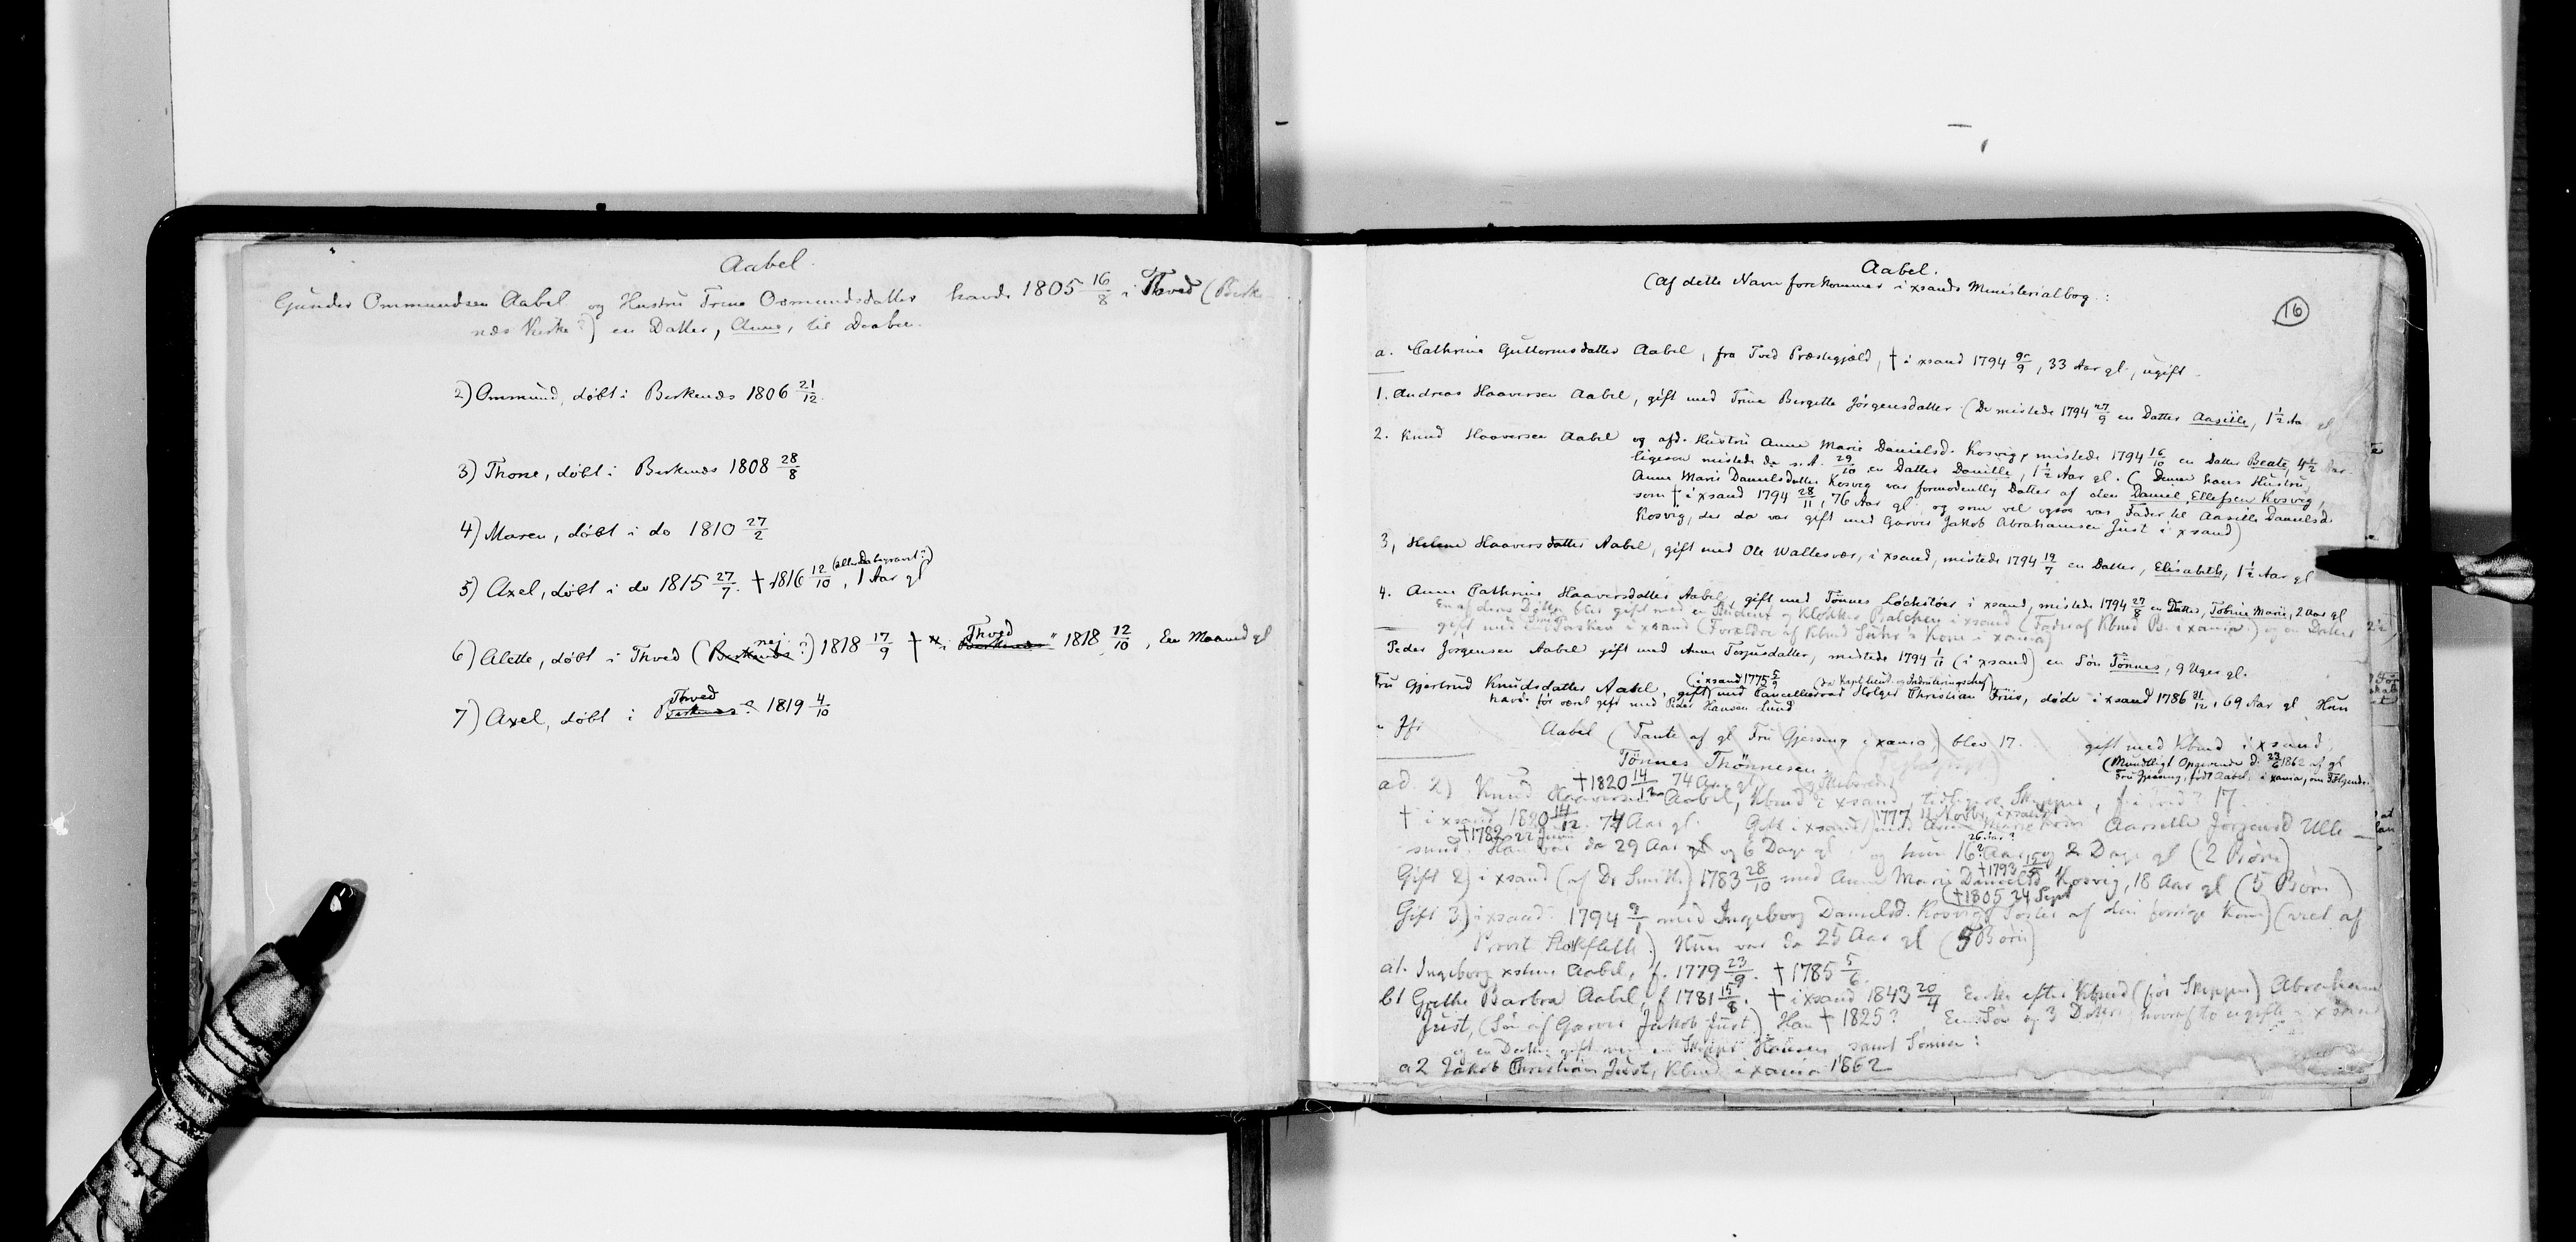 Aabel.
Gunder Ommundsen Aabel og Hustru Trine Osmundsdatter havde 1805 16/8 i Thved (Birke-
næs Kirke?) en Datter, Anne, til Daaben.
2) Ommund, døbt i Berkenæs 1806 21/12.
3) Thone, døbt i Berkenæs 1808 28/8
4) Maren, døbt i do 1810 27/2
5) Axel, døbt i do 1815 27/7. † 1816 12/10 (eller Da begravet?), 1 Aar gl
6) Alette, døbt i Thved (Berkenæs? nej) 1818 17/9 † i Thved 1818 12/10, En Maaned gl
7) Axel, døbt i Thved Berkenæs? 1819 4/10
Aabel.
(Af dette Navn forekommer i xsands Ministerialbog:
16
a. Cathrine Guttormsdatter Aabel, fra Tved Præstegjæld, † i xsand 1794 /9, 33 Aar gl., ugift.
1. Andreas Haaversen Aabel, gift med Trine Bergitte Jørgensdatter. (De mistede 1794 27/9 en Datter Aasille, 1 1/2 Aa gl
2. Knud Haaversen Aabel og afd. Hustru Anne Marie Danielsd. Kosvig, mistede 1794 16/10 en Datter Beate, 4 1/2 Aar
ligesom mistede de s. A. 29/10 en Datter Danille, 1 1/2 Aar gl. (Denne hans Hustru
Anne Marie Danielsdatter Kosvig var formodentlig Datter af den Daniel Ellefsen Kosvig,
som † i xsand 1794 28/11, 76 Aar gl. og som vel ogsaa var Fader til Aasille Danielsd.
Kosvig, der da var gift med Garver Jakob Abrahamsen Just i xsand)
3, Helene Haaversdatter Aabel, gift med Ole Wallesvær, i xsand, mistede 1794 19/7 en Datter, Elisabeth, 1 1/2 Aar gl
4. Anne Cathrine Haaversdatter Aabel, gift med Tønnes Løckstøer i xsand, mistede 1794 27/8 en Datter, Tobine Marie, 2 Aar gl
En af dens Døttre blev gift med en Student og Klokker Balchen i xsand (Fader af Kbmd B. i xania) og en Datter
gift med i xsand (Forældre af Kbmd Kone i xania)
Peder Jørgensen Aabel gift med Anne Torjusdatter, mistede 1794 1/11 (i xsand) en Søn Tønnes, 9 Uger gl.
Fru Gjertrud Knudsdatter Aabel, (i xsand 1775 5/9 gift) med Cancelliraad Holger Christian Friis, døde i xsand 1786 31/12, 69 Aar gl Hun
havde før været gift med Peder Hansen Lund
Jfr Aabel (Tante af gl Fru Gjessing i xania) blev 17 gift med Kbmd i xsand
Tönnes Thönnesen
(Mundtligt Opgivende d. 1862 af gl
Fru Gjessing, født Aabel i xania, om Følgende:
ad. 2) Knud Haaversen Aabel, Kbmd i xsand, tidligere Skipper, f. i Tved? 17
† 1820 14/12 74 Aar gl
† i xsand 1820 14/12. 74 Aar gl. Gift i xsand 1777 11 Novbr med Aasille Jörgensd Ulle-
sund. † 1782 22 Juni Han var da 29 Aar og 6 Dage gl, og hun 16? Aar, og 2 Dage gl (2 Börn)
Gift 2) i xsand (af Dr Smith) 1783 28/10 med Anne Marie Danielsd Kosvig, 18 Aar gl (5 Børn)
† 1793
Gift 3) i xsand 1794 9/1 med Ingeborg Danielsd. Kosvig († 1805 24 Sept Søster af den forrige Kone) (viet af
Provst Stokfleth). Hun var da 25 Aar gl (5 Børn)
a1. Ingeborg xstine Aabel, f. 1779 23/9. † 1785 5/6.
b1 Grethe Barbra Aabel, f 1781 15/8. † i xsand 1843 20/4 Enke efter Kbmd (før Skipper) Abraham
Just, (Søn af Garver Jakob Just). Han † 1825? En Søn og 3 Døttre, hvoraf to ugifte i xsand
og en Datter gift med en Skipper Hansen samt Sønnen:
a2 Jakob Christian Just, Kbmd i xania 1862